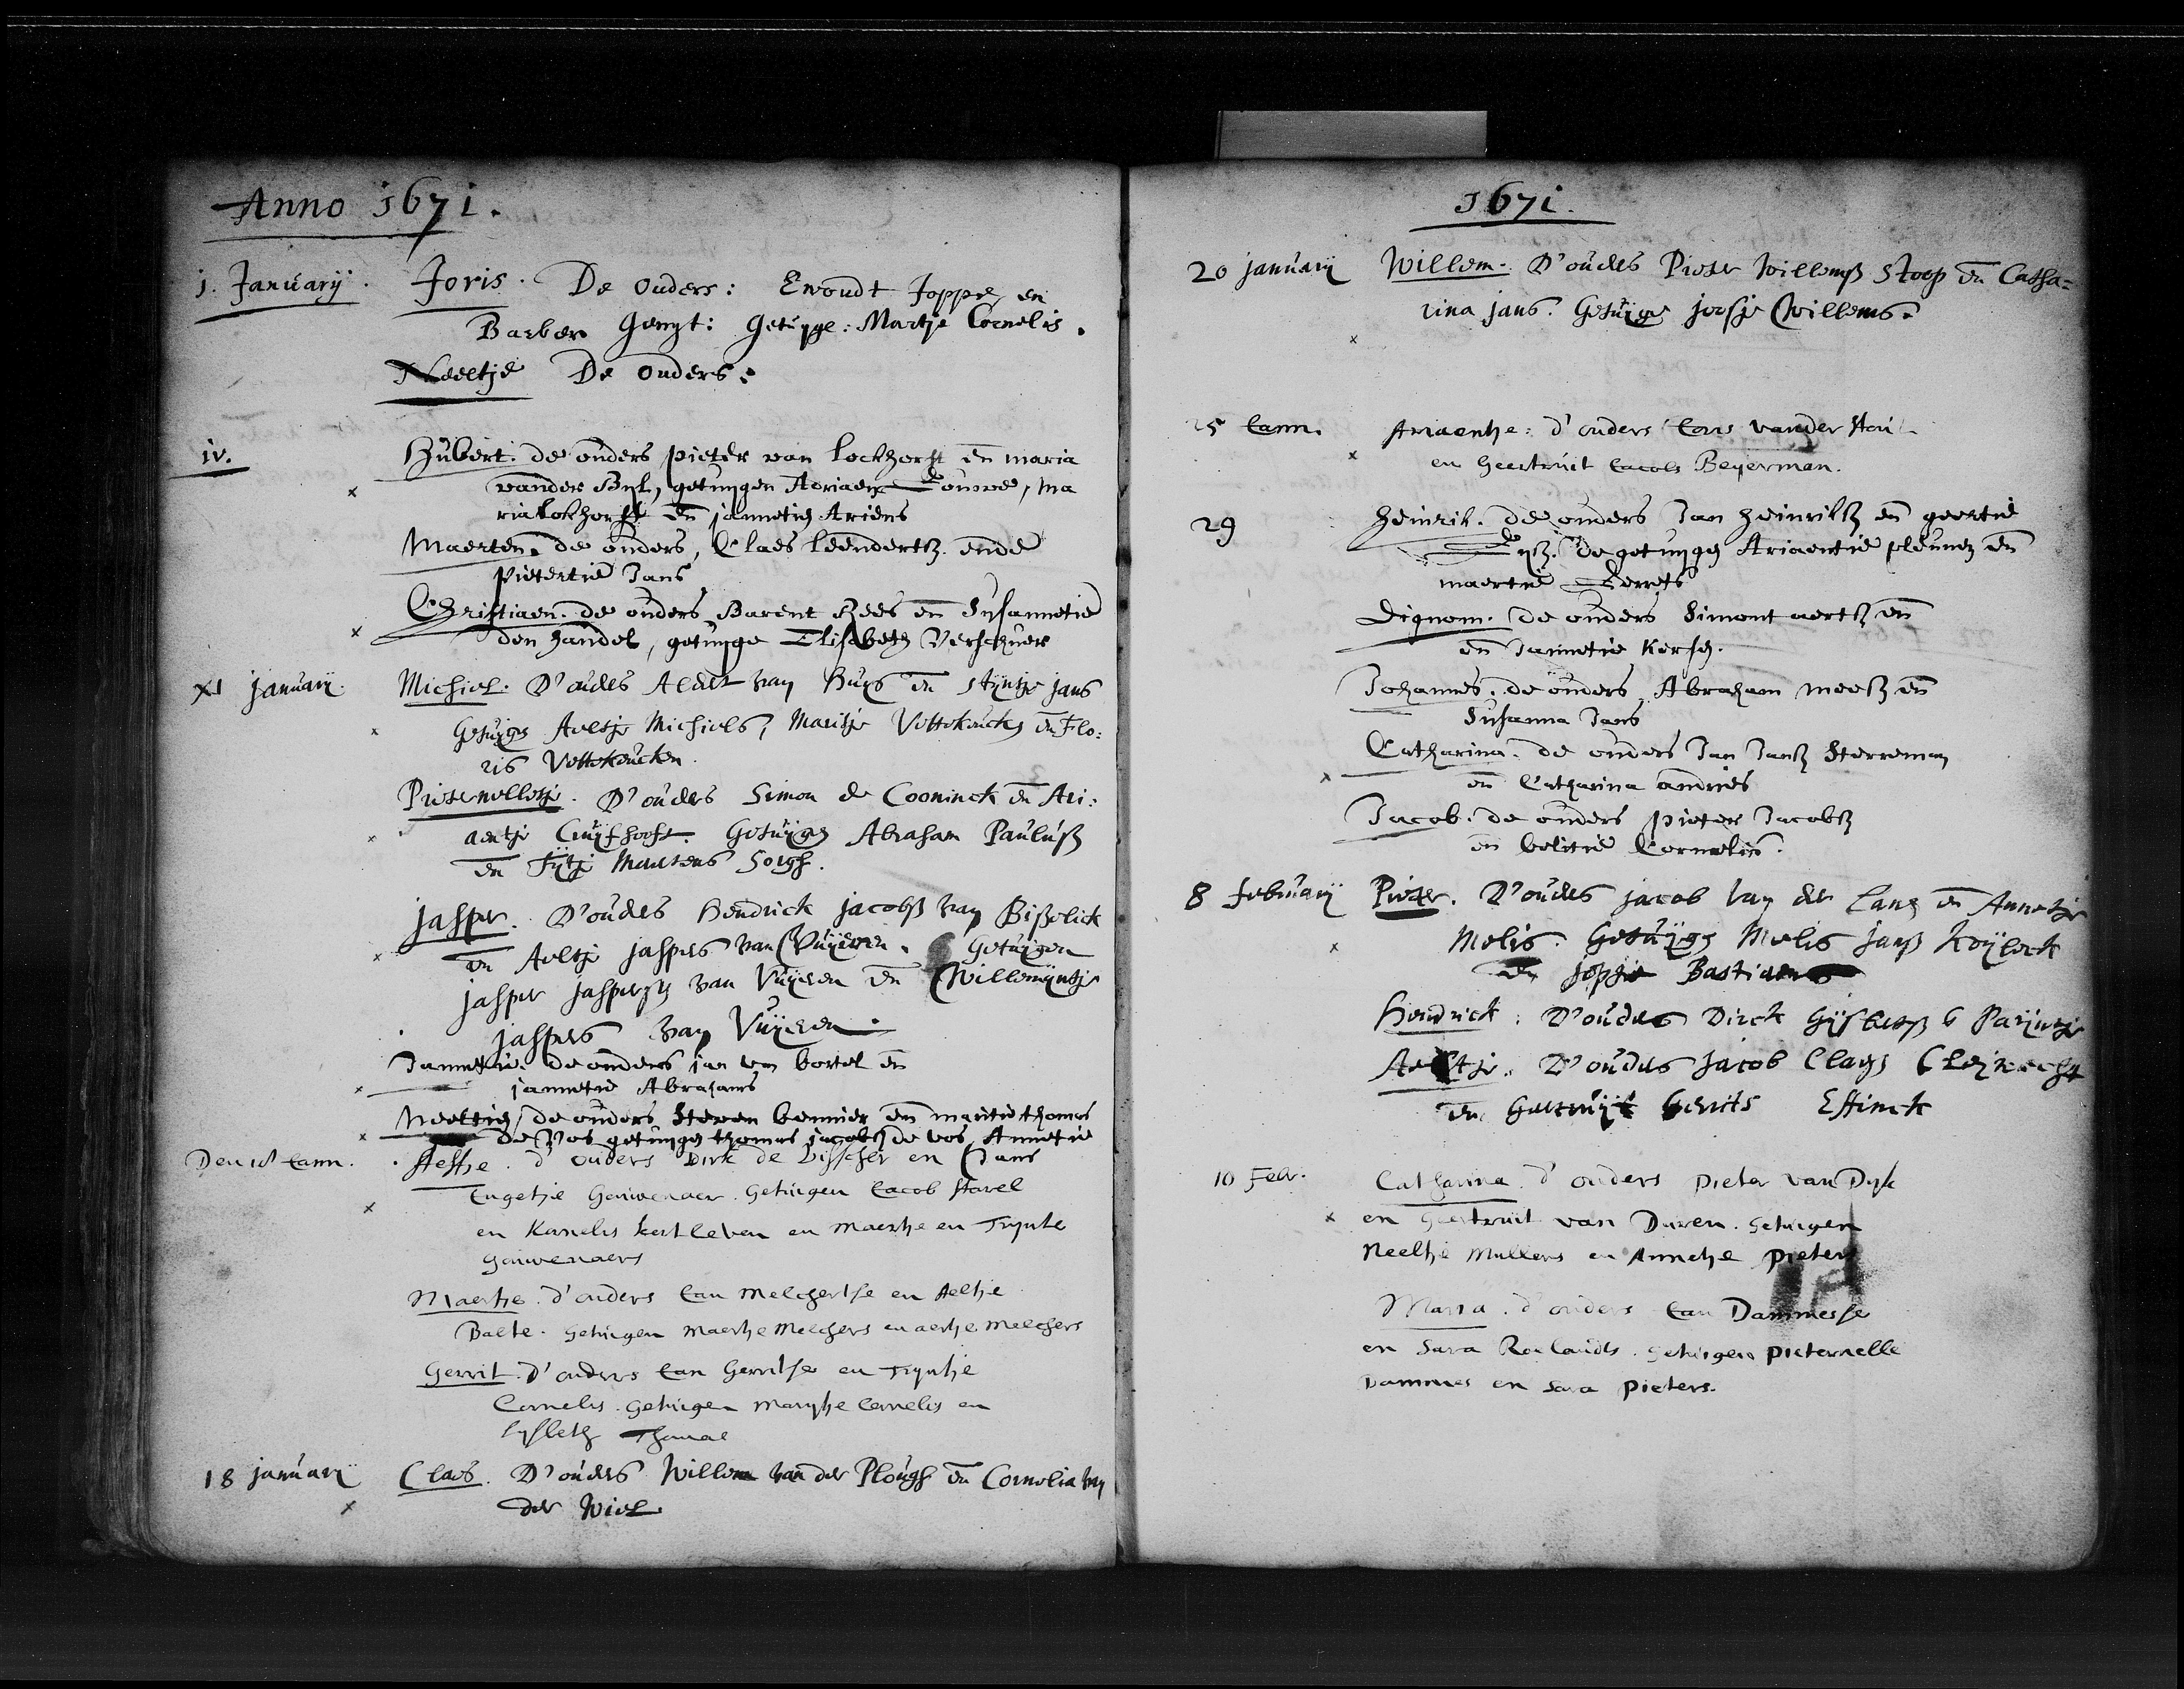 Anno 1671.
1. Januarij. Joris. De Ouders: Ewoudt Joppe, en
Barber Gengt: Getuyge: Martje Cornelis.
Neeltje De Ouders:
iv. Hubert. de ouders pieter van Lockhorst en maria
vander Byl, getuygen Adriaen Douwe, ma
ria lokhorst en jannetie Ariens
Maerten. de ouders, Claes leendertsz ende
pietertie Jans
Christiaen. de ouders Barent Rees en Susannetie
den handel, getuyge Elisabeth Verschuer
XI januarij. Michiel. D'ouders Aldert van Huys en Styntje jans
Getuyge Aeltje Michiels, Maritje Vettekeucken en Flo:
ris Vettekeucken.
Pieternelletje. D'ouders Simon de Cooninck en Ari:
aentje Cruyfhooft. Getuyge Abraham Paulusz
en Fytje Maertens Sorgh.
jasper. D'ouders Hendrick jacobsz van Biszelick
en Aeltje jaspers van Vuyeren. Getuygen
jasper jaspersz van Vuyeren en Willemyntje
jaspers van Vuyeren.
Jannetie. de ouders jan van bortel en
jannetie Abrahams
Neeltie, de ouders Steven bennier en maritie thomas
de Vos getuyge thomas jacobsz de vos, Annetie
Jans
Den 18 Iann. Aeltje. d'ouders Dirk de Visscher en
Engetje Gouwenaer. Getuigen Iacob Stavel
en Kornelis kerkleven en Maertje en Tryntie
Gouwenaers
Maertje. d'ouders Ian Melchertse en Aeltje
Balte. Getuigen Maertje Melchers en aertje Melchers
Gerrit. d'ouders Ian Gerritse en Tryntje
Cornelis. Getuigen Marytje Cornelis en
Lysbeth
18 januarij Claes. D'ouders Willem van der Plough en Cornelia van
der Wiel
1671.
20 januarij Willem. D'ouders Pieter Willemsz Stoop en Catha=
rina jans. Getuyge joosje Willems.
25 Iann. Ariaentje: d'ouders Ioris vander
en Geertruit Iacobs Beyerman.
29 Heinrik. de ouders Jan heinriksz en geertie
de getuyge Ariaentie pleunes en
maertie Gerrets
Dignom. de ouders Simont aertsz en
en Jannetie Kersse.
Johannes. de ouders Abraham meesz en
Susanna Jans
Catharina. de ouders Jan Jansz Sterreman
en Catharina andries
Jacob. de ouders pieter Jacobsz
en belitie Cornelis.
8 februarij Pieter. D'ouders jacob van der Lang en Annetje
Melis. Getuyge Melis jansz
en jopje Bastiaens
Hendrick. D'ouders Dirck Gysbertsz
Aeltje. D'ouders Jacob Claesz
en Geertruyt Gerrits Effinck
10 Febr. Catharina. d'ouders Pieter van Dyk
en Geertruit van Duren. Getuigen
Neeltje Mullers en Annetje Pieters
Maria. d'ouders Ian Dammesse
en Sara Roelands. Getuigen Pieternelle
Dammes en Sara Pieters.